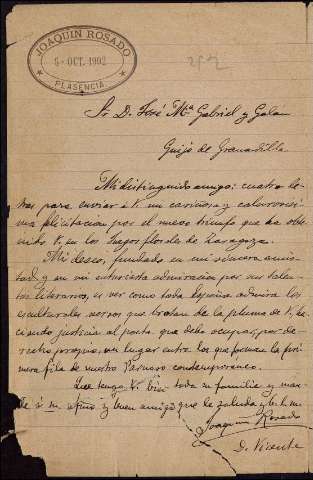 JOAQUIN ROSADO
5 - OCT. 1902
PLASENCIA
Sr. D. José Mª Gabriel y Galán
Guijo de Granadilla
Mi distinguido amigo: cuatro le-
tras para enviar á V. un cariñosa y calurosisi-
ma felicitacion por el nuevo triunfo que ha obte-
nido V. en los Juegos florales de Zaragoza.
Mi deseo, fundado en mi sincera amis-
tad y en mi entusiasta admiracion por sus talen-
tos literarios, es ver como toda España admira los
esculturales versos que brotan de la pluma de V. ha-
ciendo justicia al poeta que debe ocupar, por de-
recho propio, un lugar entre los que forman la pri-
mera fila de nuestro Parnaso contemporaneo.
Que tenga V. bien toda su familia y man-
de á su afmo y buen amigo que le saluda y b. l. m.
Joaquin Rosado
D. Vicente